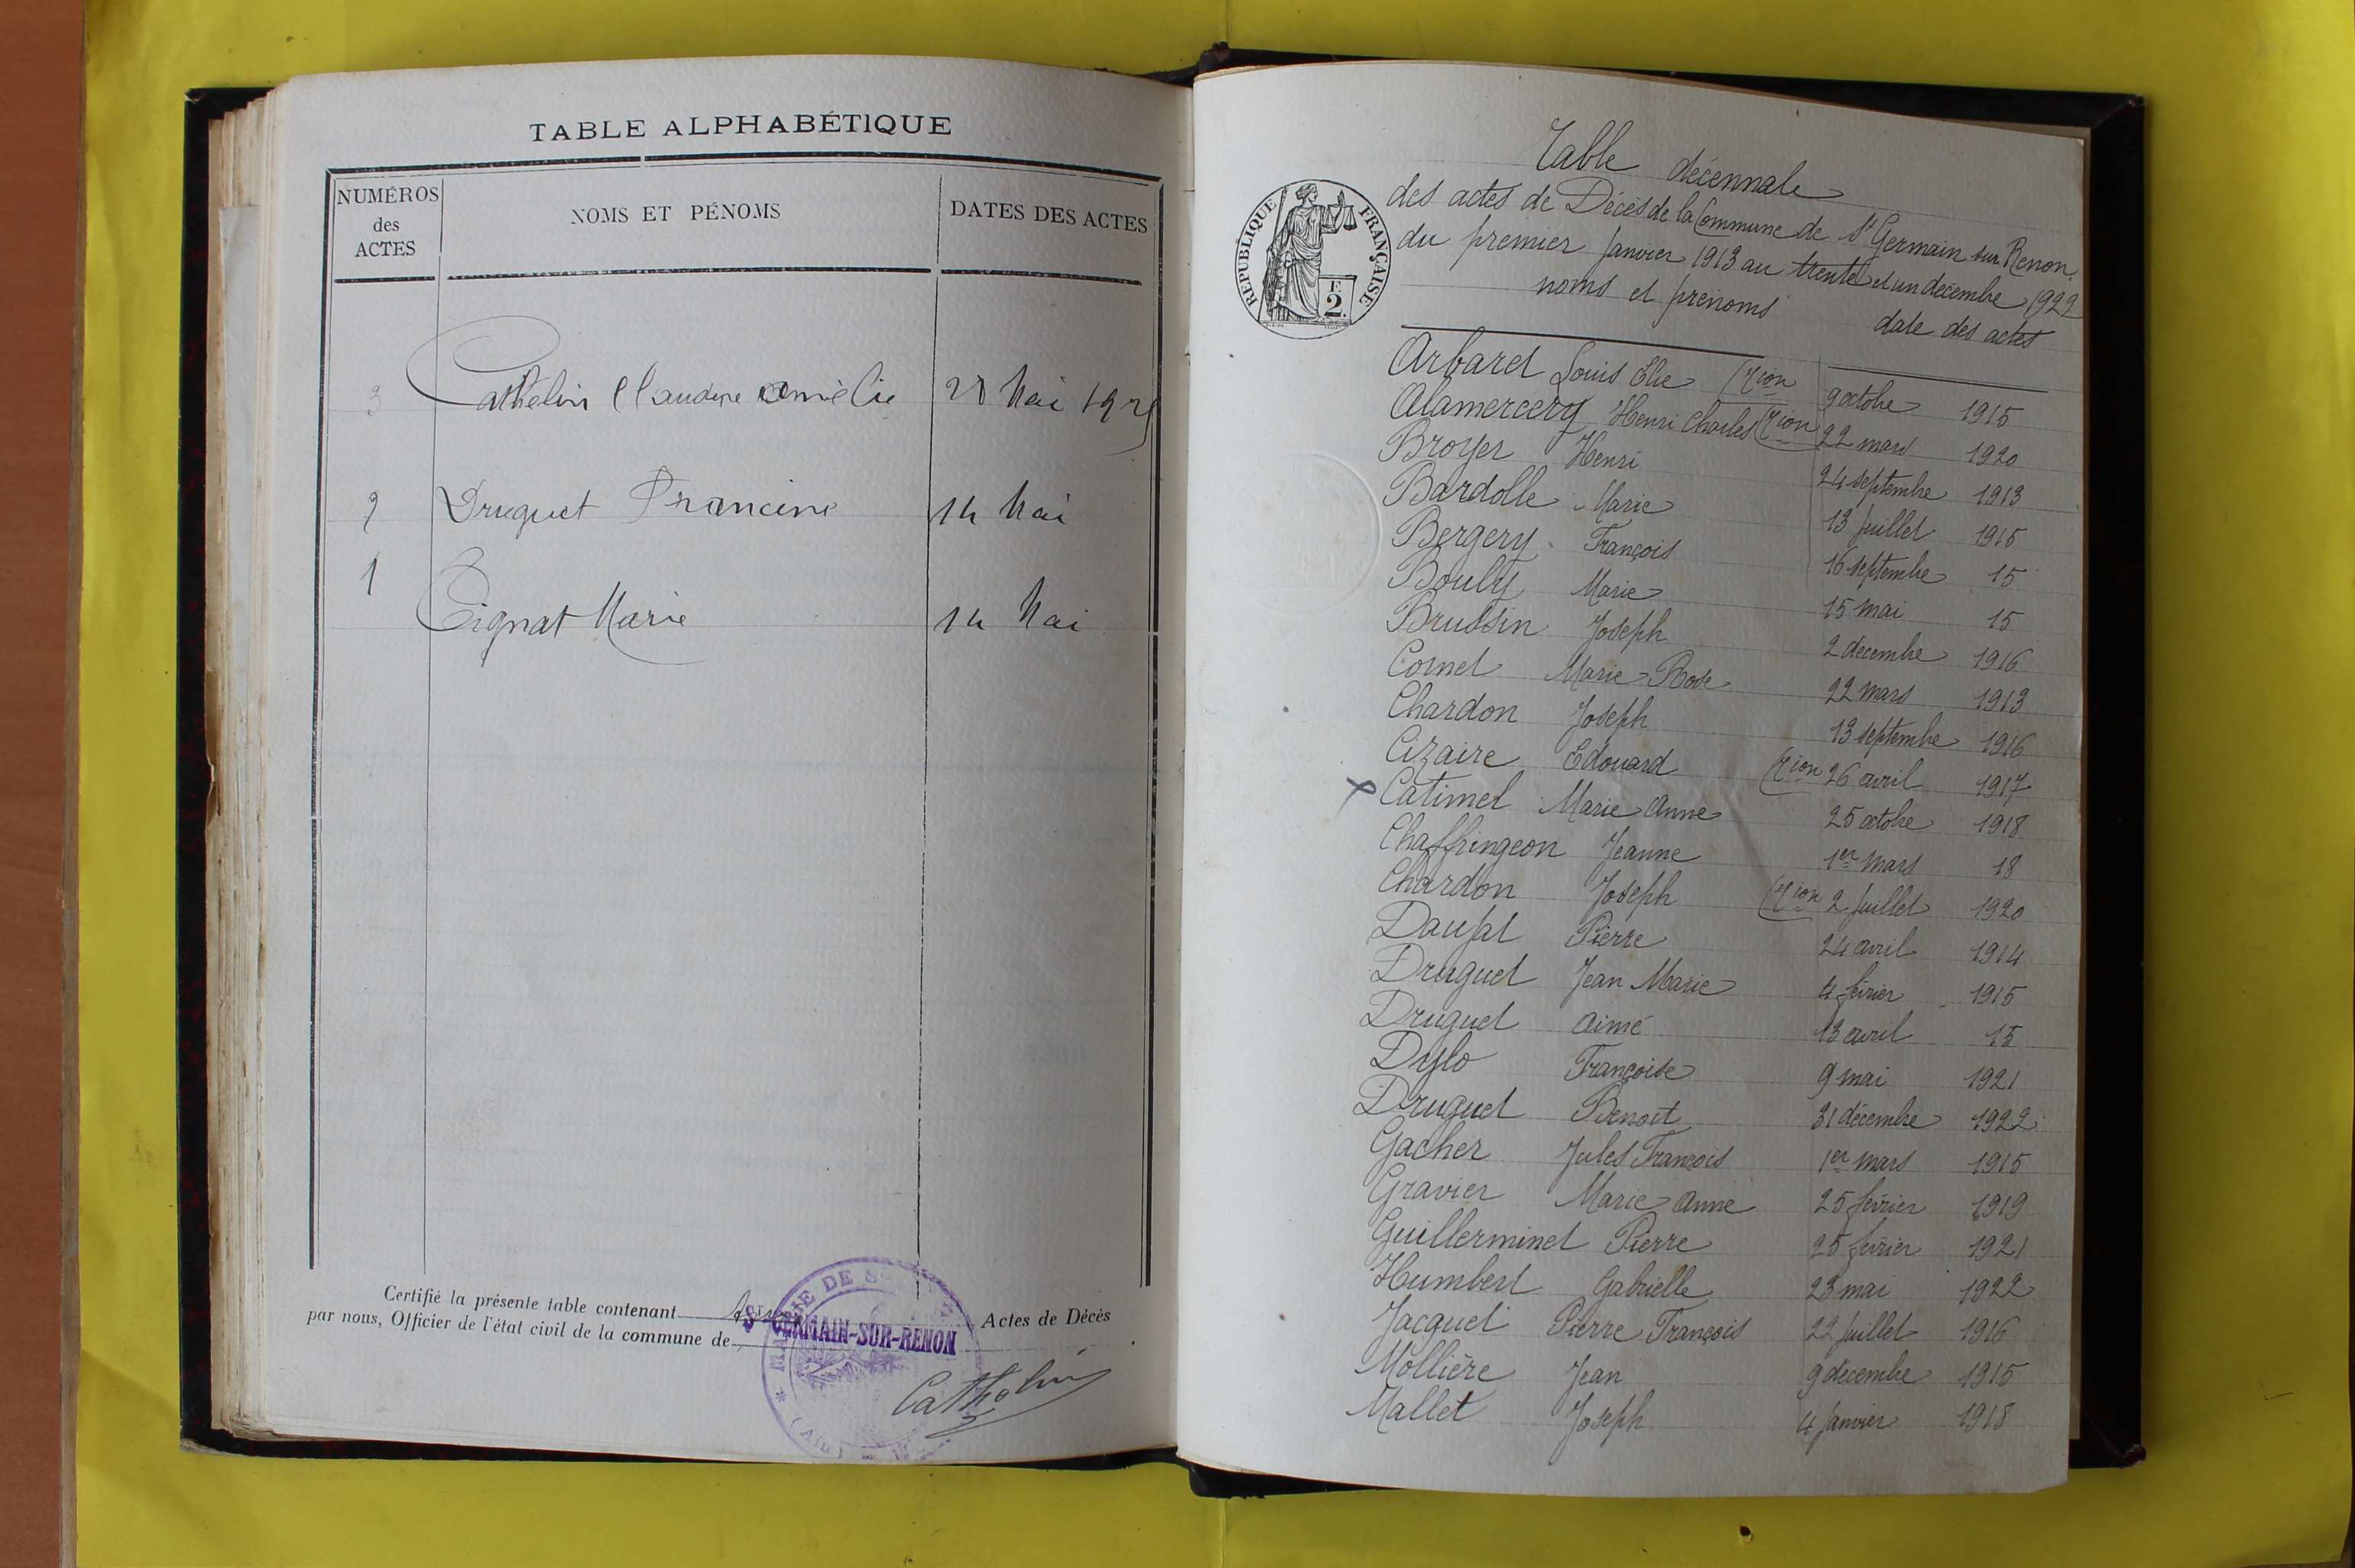 TABLE ALPHABÉTIQUE
NUMÉROS des ACTES
NOMS ET PÉNOMS
DATES DES ACTES
3 Cathelin Claudine Amélie 28 Mai
2 Druguet Francine 14 Mai
1 Tignat Marie 14 Mai
Certifié la présente table contenant Actes de Décès
par nous, Officier de l'état civil de la commune de ST GERMAIN-SUR-RENON
MAIRIE DE (AIN)
Cathelin
RÉPUBLIQUE FRANÇAISE
F. 2.
Table décennale
des actes de Décès de la Commune de St Germain sur Renon
du premier Janvier 1913 au trente et un decembre 1922
noms et prénoms date des actes
Arbaret Louis Elie (Xion 9 octobre 1915
Alamercery Henri Charles (Xion 22 mars 1920
Broyer Henri 24 septembre 1913
Bardolle Marie 13 Juillet 1915
Bergery François 16 septembre 15
Bouly Marie 15 mai 15
Brussin Joseph 2 decembre 1916
Cornet Marie-Rose 22 mars 1913
Chardon Joseph 13 septembre 1916
Cizaire Edouard (Xion 26 avril 1917
Catimel Marie Anne 25 octobre 1918
Chaffringeon Jeanne 1er mars 18
Chardon Joseph (Xion 2 Juillet 1920
Daujat Pierre 24 avril 1914
Druguet Jean Marie 4 février 1915
Druguet Aimé 13 avril 15
Dylo Françoise 9 mai 1921
Druguet Benoit 31 décembre 1922
Gacher Jules François 1er mars 1915
Gravier Marie Anne 25 février 1919
Guillerminet Pierre 25 février 1921
Humbert Gabrielle 23 mai 1922
Jacquet Pierre François 22 Juillet 1916
Mollière Jean 9 decembre 1915
Mallet Joseph 4 Janvier 1918